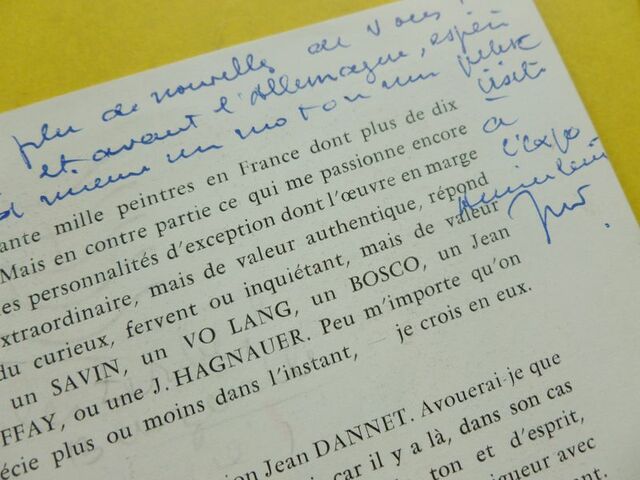 plus de nouvelles de vous !
et avant l'Allemagne, espéri
d mieux un mot ou un petite
visite
à
l'expo
Amicalement
ante mille peintres en France dont plus de dix
Mais en contre partie ce qui me passionne encore
es personnalités d'exception dont l'œuvre en marge
xtraordinaire, mais de valeur authentique, répond
du curieux, fervent ou inquiétant, mais de valeur
un SAVIN, un VO LANG, un BOSCO, un Jean
FFAY, ou une J. HAGNAUER. Peu m'importe qu'on
écie plus ou moins dans l'instant, — je crois en eux.
ion Jean DANNET. Avouerai-je que
i car il y a là, dans son cas
ton et d'esprit,
igueur avec
ent.